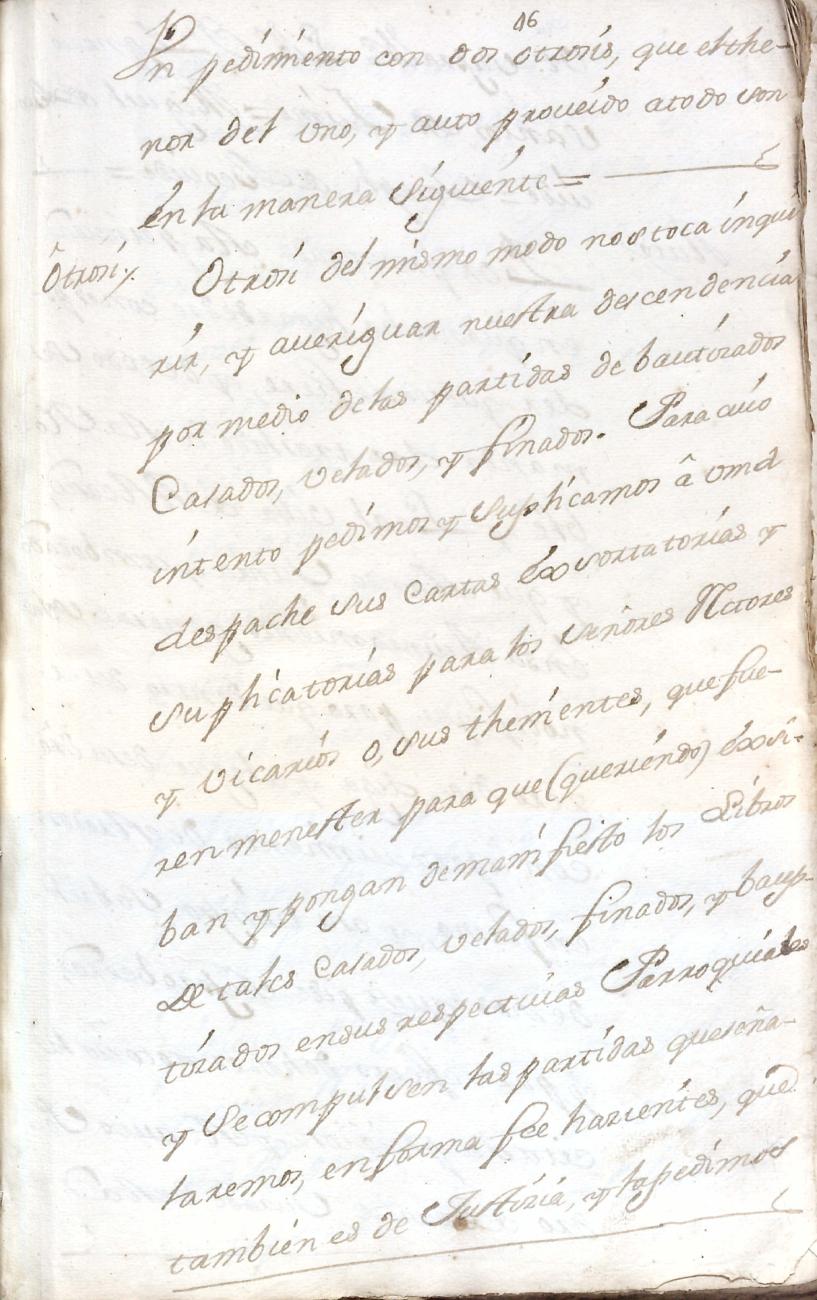 46
Un pedimiento con dos otrosis, que el the-
nor del uno, y auto proveido a todo son
en la manera siguiente =
Otrosi y. Otrosi del mismo modo nos toca inqui
rir, y averiguar nuestra descendencia
por medio de las partidas de bautizados
Casados, velados, y finados. Para cuio
intento pedimos y suplicamos â vmd
despache sus Cartas exsortatorias y
suplicatorias para los señores Rectores
y vicarios o, sus thenientes, que fue-
ren menester para que (queriendo) exsi-
ban y pongan de manifiesto los Libros
De tales Casados, velados, finados, y baup-
tizados en sus respectivas Parroquiales
y se compulsen las partidas que seña-
laremos, en forma fee hazientes, que
tambien es de Justizia, y la pedimos